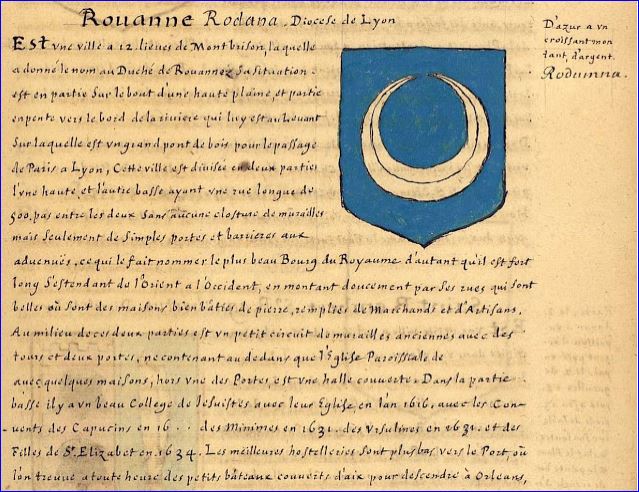 Rouanne Rodana. Diocese de Lyon
D'azur a vn
croissant mon
tant, d'argent.
Rodumna.
Est vne ville a 12. lieues de Montbrison, laquelle
a donné le nom au Duché de Rouannez Sa situation
est en partie sur le bout d'une haute plaine, et partie
en pente vers le bord de la riviere qui luy est au Levant
Sur laquelle est vn grand pont de bois pour le passage
de Paris a Lyon, Cette ville est divisée en deux parties
l'vne haute et l'autre basse ayant vne rue longue de
500. pas entre les deux Sans aucune closture de murailles
mais Seulement de Simples portes et barrieres aux
advenues, ce qui le fait nommer le plus beau Bourg du Royaume d'autant qu'il est fort
long S'estendant de l'Orient a l'Occident, en montant doucement par Ses rues qui Sont
belles où sont des maisons bien bâties de pierre, remplies de Marchands et d'Artisans.
Au milieu de ces deux parties est vn petit circuit de murailles anciennes avec des
tours et deux portes, ne contenant au dedans que l'Eglise Paroissiale de
avec quelques maisons, hors vne des Portes, est vne halle couverte. Dans la partie
basse il y a vn beau College de Jesuistes avec leur Eglise en l'an 1616. avec les Con-
uents des Capucins en 16 . . des Minimes en 1631. des Vrsulines en et des
Filles de Ste. Elizabet en 1634. Les meilleures hostelleries Sont plus bas, vers le Port, où
l'on treuve a toute heure des petits bâteaux couverts d'aix pour descendre à Orleans,